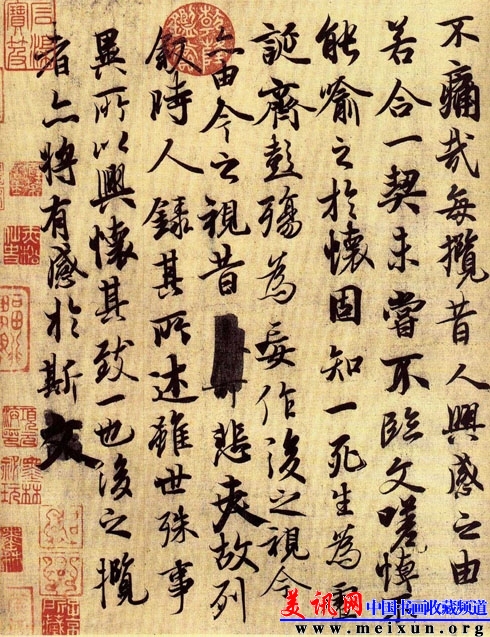 不痛哉每攬昔人興感之由
若合一契未嘗不臨文嗟悼不
能喻之於懷固知一死生為虛
誕齊彭殤為妄作後之視今
亦由今之視昔悲夫故列
敘時人錄其所述雖世殊事
異所以興懷其致一也後之攬
者亦將有感於斯文
美讯网 中国书画收藏频道
www.meixun.org